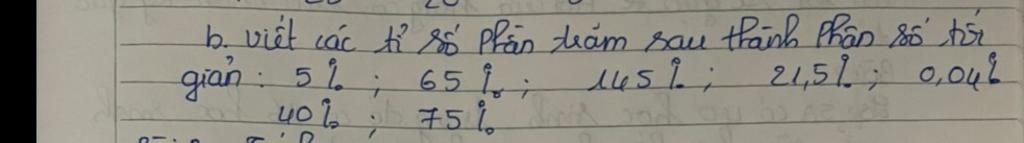 b. viết các tỉ số phần trăm sau thành phân số tối
giản : 5% ; 65% ; 145% ; 21,5% ; 0,04%
40% ; 75%